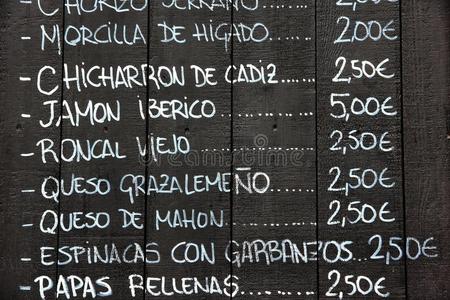 CHORIZO SERRANO...... 2,00€
- MORCILLA DE HIGADO.... 2,00€
- CHICHARRON DE CADIZ...... 2,50€
- JAMON IBERICO ........... 5,00€
- RONCAL VIEJO ............ 2,50€
- QUESO GRAZALEMEÑO....... 2,50€
- QUESO DE MAHON........... 2,50€
- ESPINACAS CON GARBANZOS...2,50€
- PAPAS RELLENAS........... 2,50€